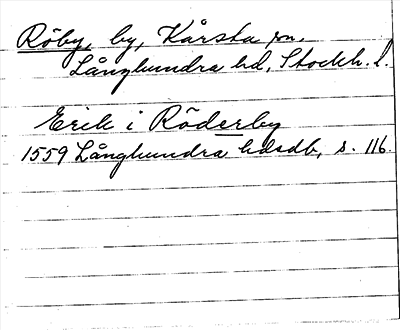 Röby, by, Kårsta sn.
Långhundra hd, Stockh. l.
Erik i Röderby
1559 Långhundra hdsdb, s. 116.